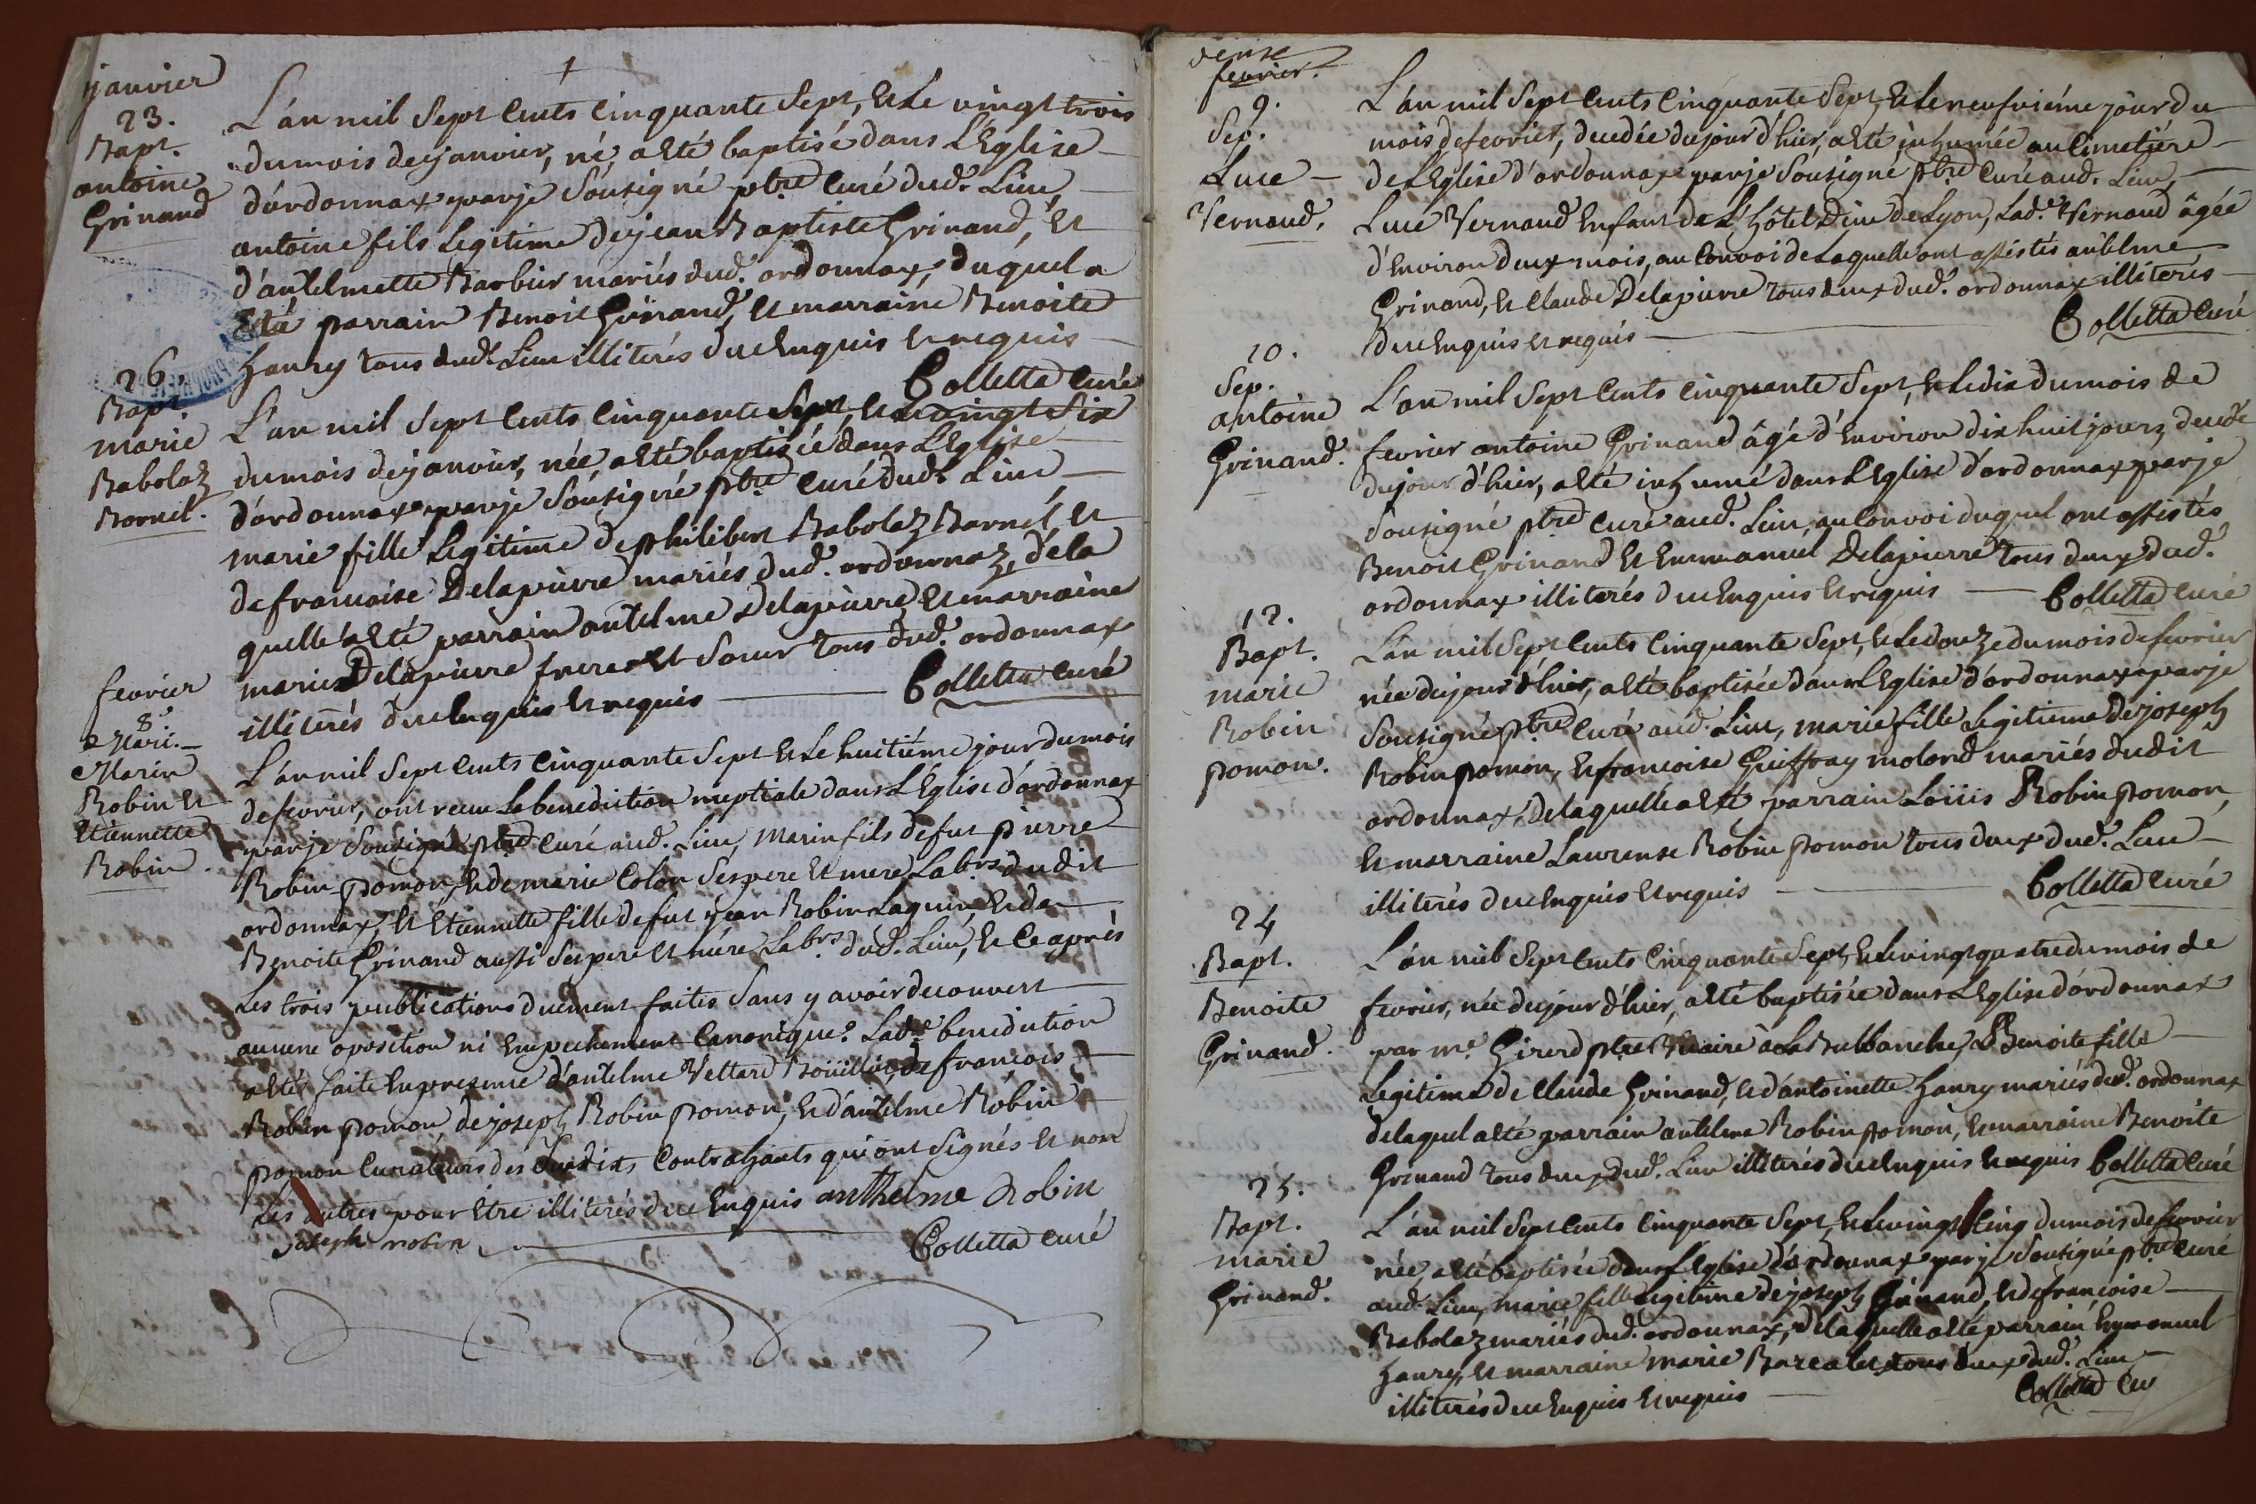 janvier
23.
Bapt.
antoine
Grinand
L'an mil Sept Cents Cinquante Sept, Et Le vingt trois
du mois de janvier, né, a Eté baptisé dans L'Eglise
d'ordonnax par je Sousigné ptre Curé dud. Lieu,
antoine fils Legitime de jean Baptiste Grinand, Et
d'antelmette Barbier mariés dud. ordonnax, duquel a
Eté parrain Benoit Grinand, Et marraine Benoite
hanry tous dud. Lieu illiterés due Enquis Et requis
Colletta Curé
26.
Bapt.
marie
Babolaz
Bornel.
L'an mil Sept Cents Cinquante Sept, Et Le vingt Six
du mois de janvier, née, a Eté baptisée dans L'Eglise
d'ordonnax par je Sousigné ptre Curé dud. Lieu
marie fille Legitime de philibert Babolaz Bornel, Et
de francoise Delapierre mariés dud. ordonnaz, de la
quelle a Eté parrain antelme Delapierre Et marraine
marie Delapierre frere Et Soeur tous dud. ordonnax
illiterés due Enquis Et requis
Colletta Curé
fevrier
8.
Mari.
Marin
Robin Et
Etiennette
Robin.
L'an mil Sept Cents Cinquante Sept Et Le huitiéme jour du mois
de fevrier, ont recu La benediction nuptiale dans L'Eglise d'ordonnax
par je Sousigné ptre Curé aud. Lieu, Marin fils de fut pierre
Robin pomon, Et de marie Colon Ses pere Et mere Labrs dudit
ordonnax, Et Etiennette fille de fut jean Robin Et de
Benoite Grinand aussi Ses pere Et mére Labrs dud. Lieu, Et Ce après
Les trois publications duement faites Sans y avoir decouvert
aucune oposition ni Empechement Canonique. Lade. benediction
a Eté faite En presence d'antelme Vettard Boüillin, de françois
Robin pomon de joseph Robin pomon, Et d'antelme Robin
pomon Curateurs des Susdits Contrahants qui ont Signés Et non
Les autres pour Etre illiterés due Enquis anthelme Robin
joseph robin
Colletta Curé
fevrier.
9.
Sep.
Luce
Vernaud.
L'an mil Sept Cents Cinquante Sept, Et Le neufviéme jour du
mois de fevrier, decedée du jour d'hier, a Eté inhumée au Cimetiére
de L'Eglise d'ordonnax par je Sousigné ptre Curé aud. Lieu,
Luce Vernaud Enfant de L'hôtel Dieu de Lyon, Lade. Vernaud âgée
d'Environ deux mois, au Convoi de Laquelle ont assistés antelme
Grinand, Et Claude Delapierre tous deux dud. ordonnax illiterés
due Enquis Et requis
Colletta Curé
10.
Sep.
antoine
Grinand.
L'an mil Sept Cents Cinquante Sept, Et Le dix du mois de
fevrier antoine Grinand âgé d'Environ dix huit jours, decedé
du jour d'hier, a Eté inhumé dans L'Eglise d'ordonnax par je
Sousigné ptre Curé aud. Lieu, au Convoi duquel ont assistés
Benoit Grinand Et Emmanuel Delapierre tous deux dud.
ordonnax illiterés due Enquis Et requis
Colletta Curé
12.
Bapt.
marie
Robin
pomon.
L'an mil Sept Cents Cinquante Sept, Et Le douze du mois de fevrier
née du jour d'hier, a Eté baptisée dans L'Eglise d'ordonnax par je
Sousigné ptre Curé aud. Lieu, marie fille Legitime de joseph
Robin pomon, Et francoise Guiffray molard mariés dudit
ordonnax, de laquelle a Eté parrain Loüis Robin pomon,
Et marraine Laurense Robin pomon tous deux dud. Lieu
illiterés due Enquis Et requis
Colletta Curé
24
Bapt.
Benoite
Grinand.
L'an mil Sept Cents Cinquante Sept, Et Le vingt quatre du mois de
fevrier, née du jour d'hier, a Eté baptisée dans L'Eglise d'ordonnax
par me. Girerd ptre Vicaire à La Benoite fille
Legitime de Claude Grinand, Et d'antoinette hanry mariés dud. ordonnax
de laquel a Eté parrain antelme Robin pomon, Et marraine Benoite
Grinand tous deux dud. Lieu illiterés due Enquis Et requis Colletta Curé
25.
Bapt.
marie
Grinand.
L'an mil Sept Cents Cinquante Sept, Et Le vingt Cinq du mois de fevrier
née, a Eté baptisée dans L'Eglise d'ordonnax par je Sousigné ptre Curé
aud. Lieu, marie fille Legitime de joseph Grinand, Et de françoise
Babolaz mariés dud. ordonnax, de laquelle a Eté parrain Emmanuel
hanry, Et marraine marie tous deux dud. Lieu
illiterés due Enquis Et requis
Colletta Cur